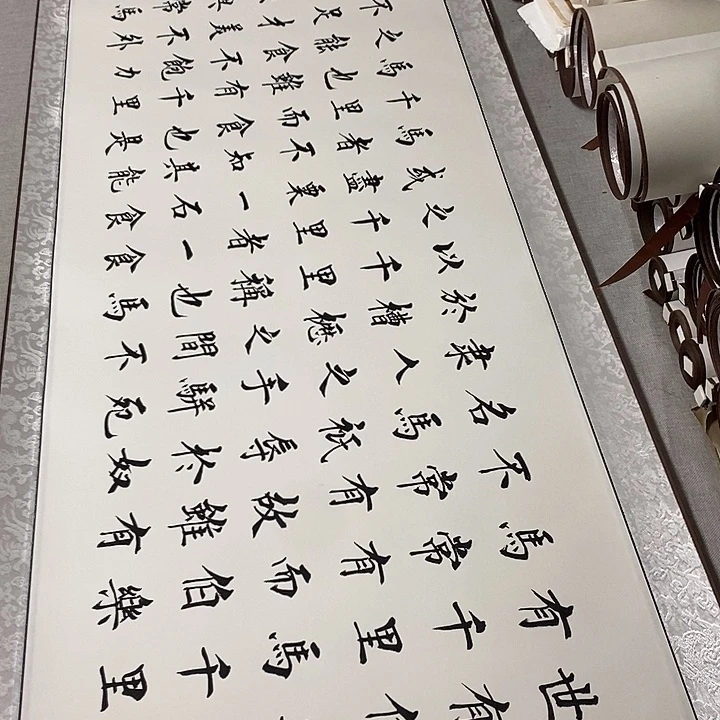 世有伯
有千里馬千里
馬常有而伯樂
不常有故雖有
名馬祇辱於奴
隸人之手駢死
於槽櫪之間不
以千里稱也馬
之千里者一食
或盡粟一石食
馬者不知其能
千里而食也是
馬也雖有千里
之能食不飽力
不足才美不外
常馬